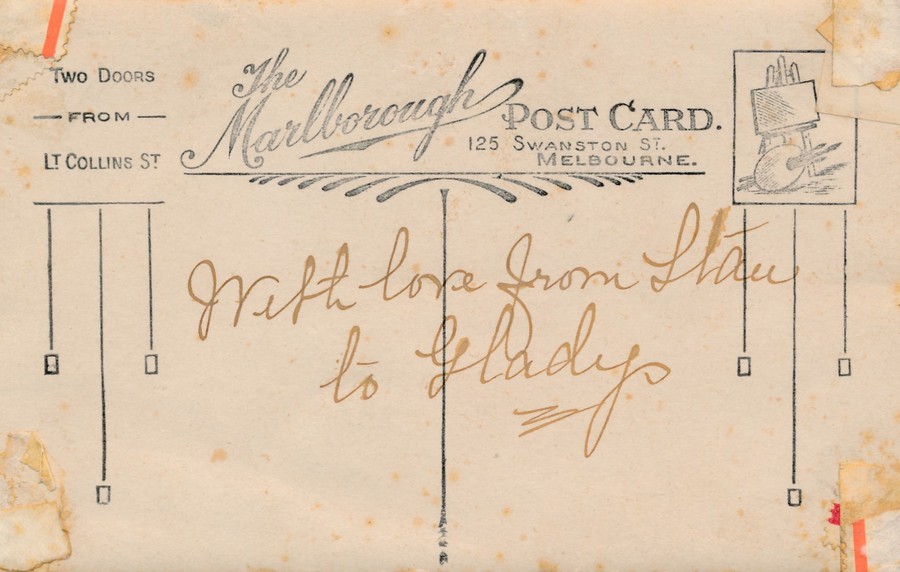 Two Doors
— FROM —
Lt Collins St
The
Marlborough
Post Card.
125 Swanston St.
Melbourne.
With love from Stan
to Gladys